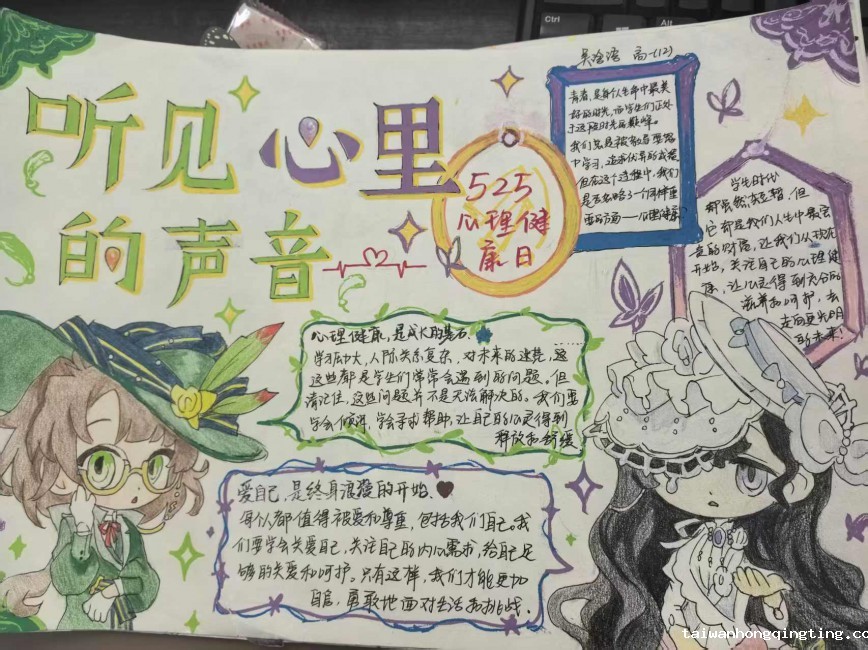 听见心里
的声音
525
心理健
康日
高一(12)
青春,是每个人生命中最美
好的时光,而学生们正处
于这段时光的巅峰。
我们总是被教导要努
力学习,追求优异的成绩
但在这个过程中,我们
是否忽略了一个同样重
要的方面——心理健康
学生时代
都虽然短暂,但
它却是我们人生中最宝
贵的时磨,让我们从现在
开始,关注自己的心理健
康,让心灵得到充分的
滋养和呵护,去
走向更光明
的未来!
心理健康,是成长的基石.
学习压力大,人际关系复杂,对未来的迷茫,
这些都是学生们常常会遇到的问题。但
请记住,这些问题并不是无法解决的。我们要
学会倾诉,学会寻求帮助,让自己的心灵得到
释放和舒缓
爱自己,是终身浪漫的开始.
每个人都值得被爱和尊重,包括我们自己。我
们要学会关爱自己,关注自己的内心需求,给自己足
够的关爱和呵护。只有这样,我们才能更加
自信,勇敢地面对生活和挑战.
Ctrl
Alt
taiwanhongqingting.co